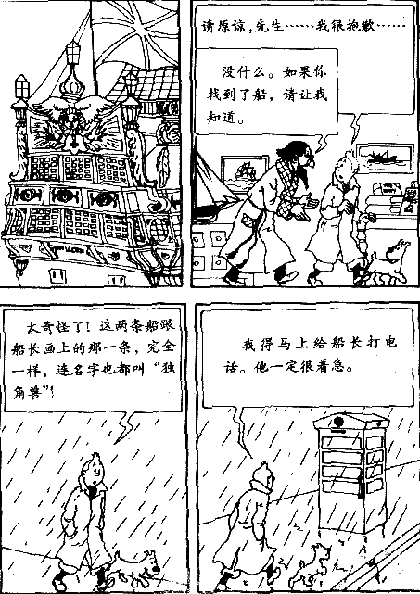 请原谅,先生……我很抱歉……
没什么。如果你
找到了船,请让我
知道。
太奇怪了!这两条船跟
船长画上的那一条,完全
一样,连名字也都叫“独
角兽”!
我得马上给船长打电
话。他一定很着急。